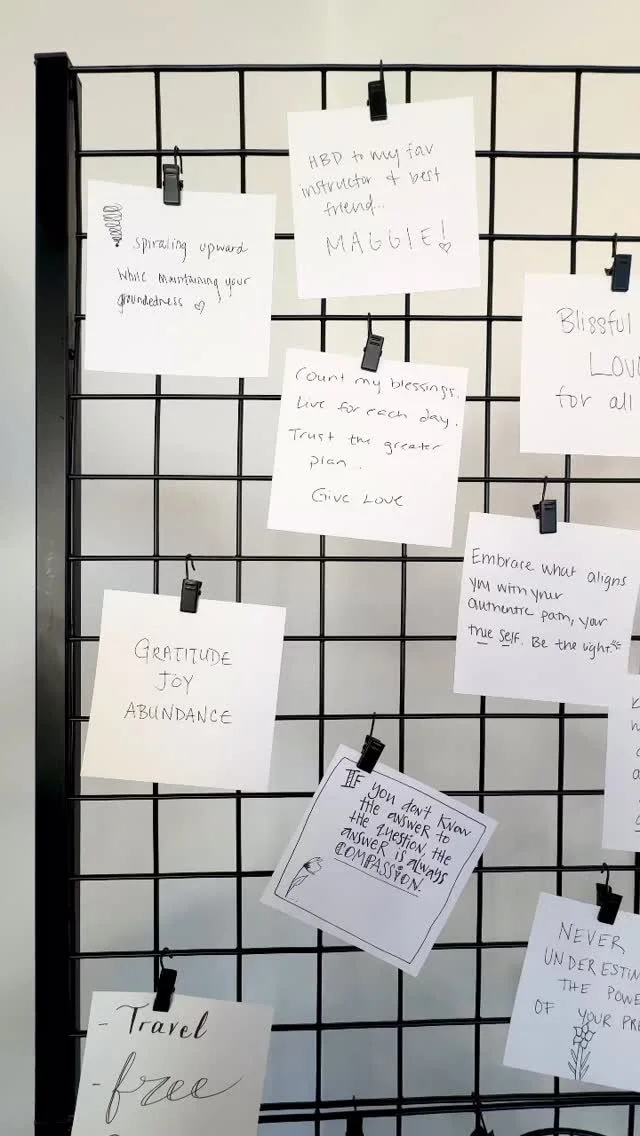 HBD to my fav
instructor & best
friend...
MAGGIE!
spiraling upward
while maintaining your
groundedness
Blissful
for all
Count my blessings.
Live for each day.
Trust the greater
plan.
Give Love
Embrace what aligns
you with your
authentic path, your
true self. Be the light.
GRATITUDE
JOY
ABUNDANCE
IF you don't know
the answer to
the question, the
answer is always
COMPASSION.
NEVER
THE
OF YOUR
- Travel
- free